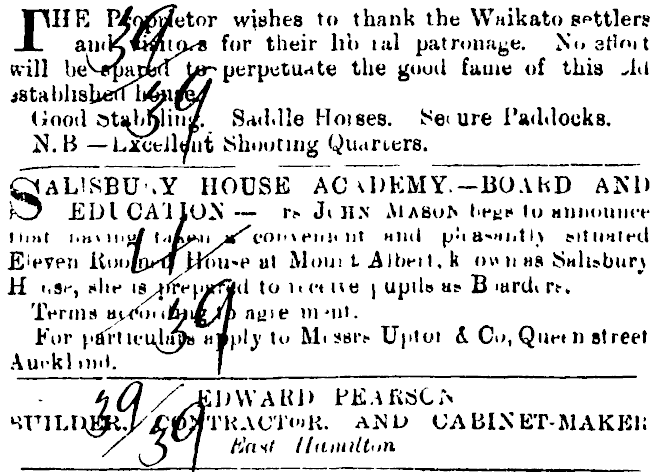 THE Proprietor wishes to thank the Waikato settlers
and visitors for their lib ral patronage. No effort
will be spared to perpetuate the good fame of this old
established house.
39
Good Stabling. Saddle Horses. Secure Paddocks.
39
N.B —Excellent Shooting Quarters.
SALISBURY HOUSE ACADEMY.—BOARD AND
EDUCATION — rs JOHN MASON begs to announce
that having taken a convenient and pleasantly situated
11
Eleven Roomed House at Mount Albert, k own as Salisbury
H use, she is prepared to receive pupils as Boarders.
Terms according to agre ment.
39
For particulars apply to Messrs Upton & Co, Queen street
Auckland.
39
39
EDWARD PEARSON
BUILDER, CONTRACTOR, AND CABINET-MAKER
East Hamilton